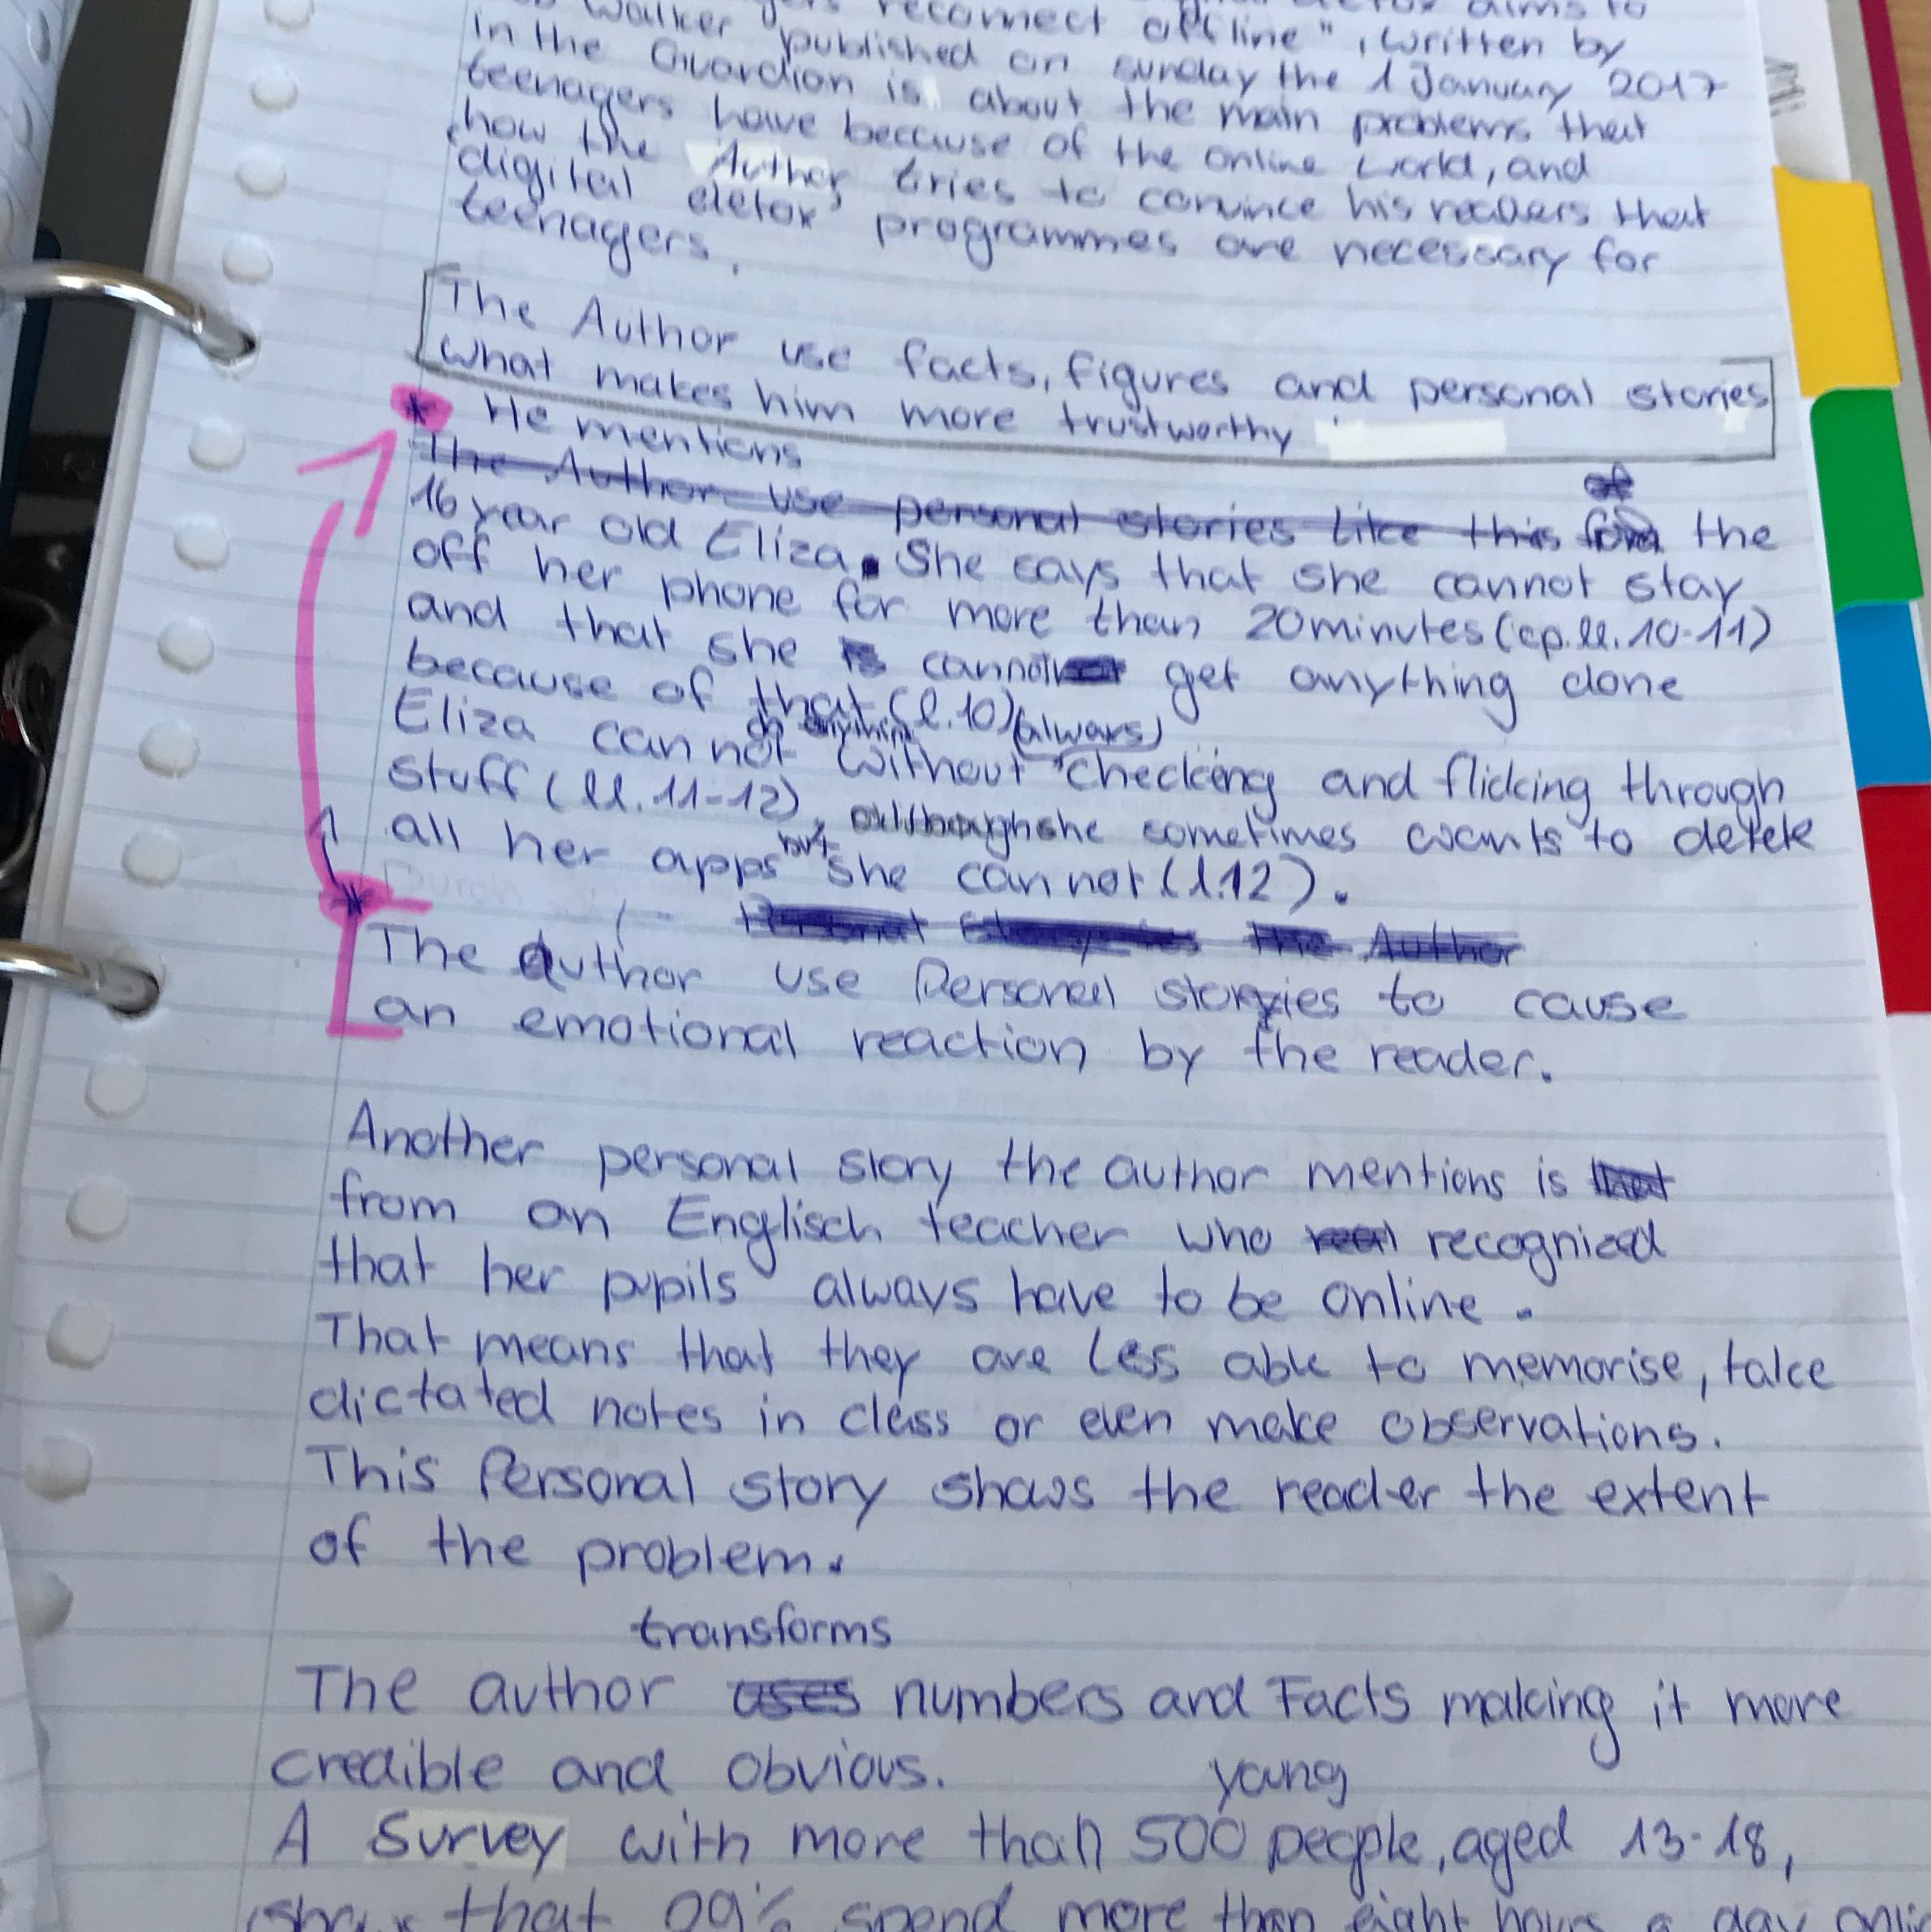 Walker reconnect offline", written by
in the Guardian published on sunday the 1 January 2017
teenagers is about the main problems that
how the have because of the online world, and
digital Author tries to convince his readers that
teenagers. detox programmes are necessary for
The Author use facts, figures and personal stories
what makes him more trustworthy
* He mentions
The Author use personal stories like this the
16 year old Eliza. She says that she cannot stay
off her phone for more than 20 minutes (cp. ll. 10-11)
and that she cannot get anything done
because of that (l. 10)
do anything (always)
Eliza cannot without checking and flicking through
stuff (ll. 11-12), although she sometimes wants to delete
but
all her apps she cannot (l. 12).
* The Author
The author use Personal stories to cause
an emotional reaction by the reader.
Another personal story the author mentions is that
from an Englisch teacher who recognized
that her pupils always have to be online.
That means that they are less able to memorise, take
dictated notes in class or even make observations.
This Personal story shows the reader the extent
of the problem.
transforms
The author uses numbers and Facts making it more
credible and obvious.
young
A Survey with more than 500 people, aged 13-18,
shows that 99% spend more than eight hours a day